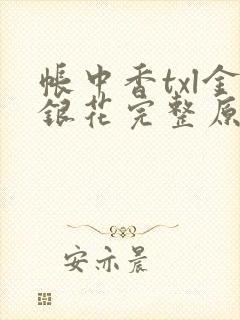 帐中香txl金
银花完整原
安亦晨